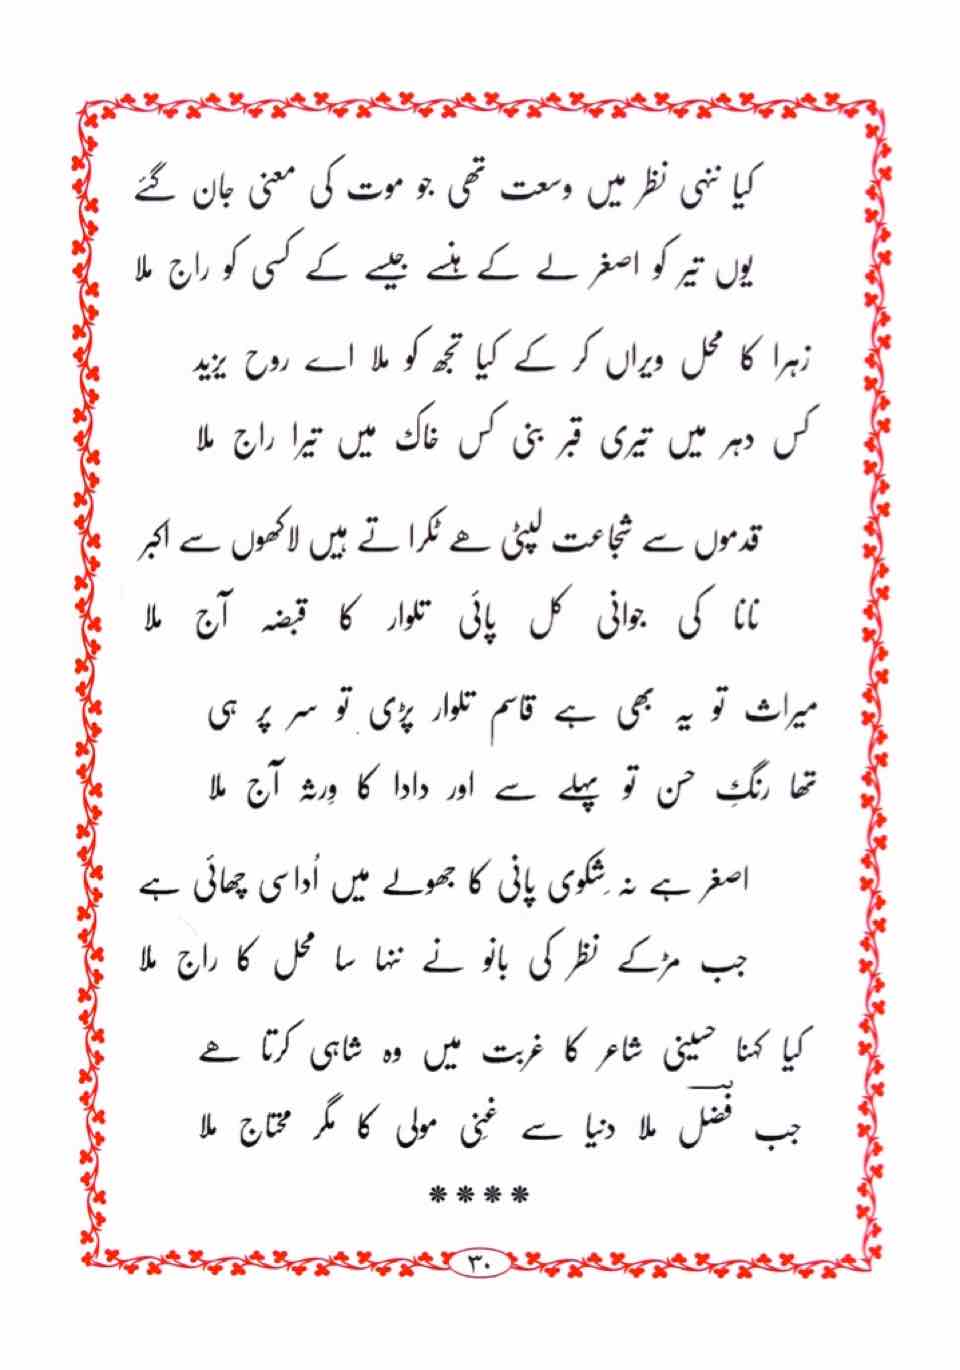 کیا ننھی نظر میں وسعت تھی جو موت کی معنی جان گئے
یوں تیر کو اصغر لے کے ہنسے جیسے کے کسی کو راج ملا
زہرا کا محل ویراں کر کے کیا تجھ کو ملا اے روح یزید
کس دہر میں تیری قبر بنی کس خاک میں تیرا راج ملا
قدموں سے شجاعت لپٹی ھے ٹکراتے ہیں لاکھوں سے اکبر
نانا کی جوانی کل پائی تلوار کا قبضہ آج ملا
میراث تو یہ بھی ہے قاسم تلوار پڑی تو سر پر ہی
تھا رنگِ حسن تو پہلے سے اور دادا کا وِرثہ آج ملا
اصغر ہے نہ شکوی پانی کا جھولے میں اُداسی چھائی ہے
جب مڑکے نظر کی بانو نے ننھا سا محل کا راج ملا
کیا کہنا حسینی شاعر کا غربت میں وہ شاہی کرتا ھے
جب فضل ملا دنیا سے غنِی مولی کا مگر محتاج ملا
****
۳۰